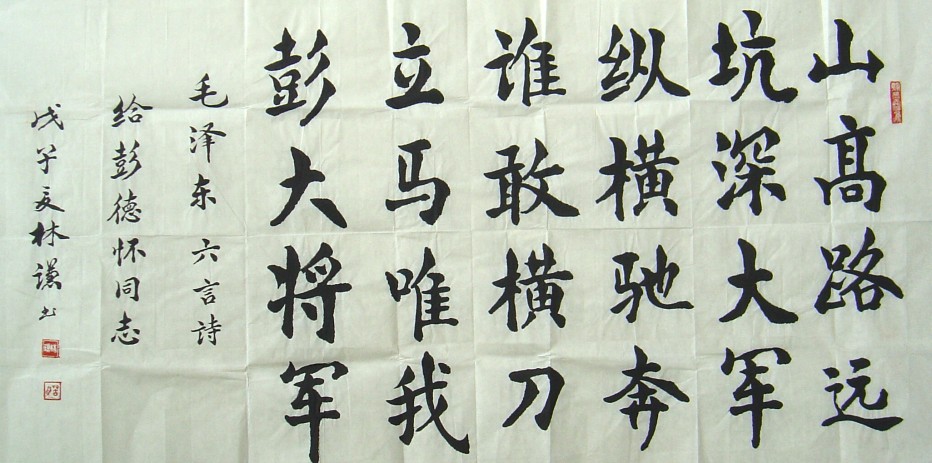 山高路远
坑深大军
纵横驰奔
谁敢横刀
立马唯我
彭大将军
毛泽东六言詩
给彭德怀同志
戊子夏林谦书